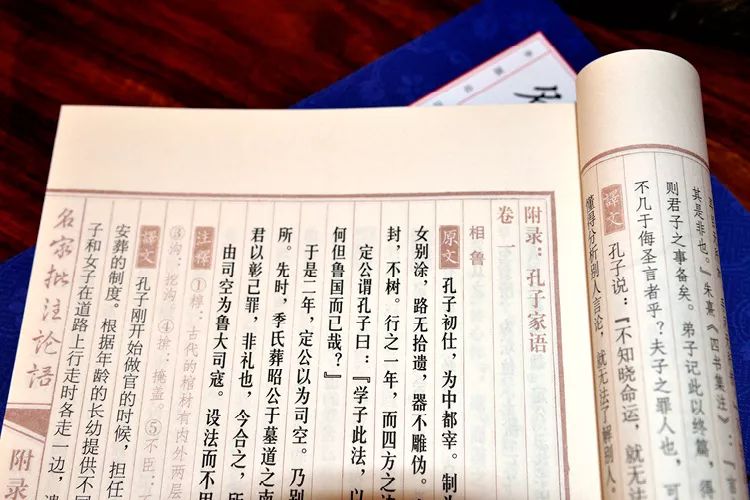 其是非也。』朱熹《四书集注》：『言
则君子之事备矣。弟子记此以终篇，得
不几于侮圣言者乎？夫子之罪人也，可
譯文 孔子说：『不知晓命运，就无法
懂得分析别人言论，就无法了解别人。
附录：孔子家语
卷一
相鲁
原文 孔子初仕，为中都宰。制为
女别涂，路无拾遗，器不雕伪。
封，不树。行之一年，而四方之
定公谓孔子曰：『学子此法，以
何但鲁国而已哉？』
于是二年，定公以为司空。乃别
所。先时，季氏葬昭公于墓道之南
君以彰己罪，非礼也，今合之，所
由司空为鲁大司寇。设法而不用
注释 ①椁：古代的棺材有内外两层
③沟：挖沟。④揜：掩盖。⑤不臣：
譯文 孔子刚开始做官的时候，担任
安葬的制度。根据年龄的长幼提供不同
子和女子在道路上行走时各走一边，遗
名家批注論語
附录